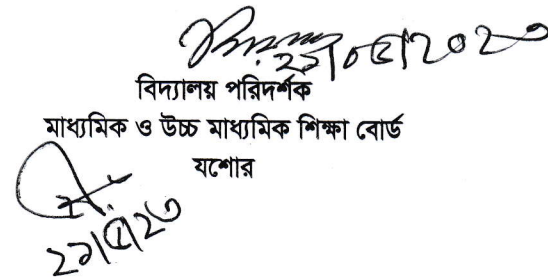 ২১/০৫/২০২৩
বিদ্যালয় পরিদর্শক
মাধ্যমিক ও উচ্চ মাধ্যমিক শিক্ষা বোর্ড
যশোর
২১/৫/২৩